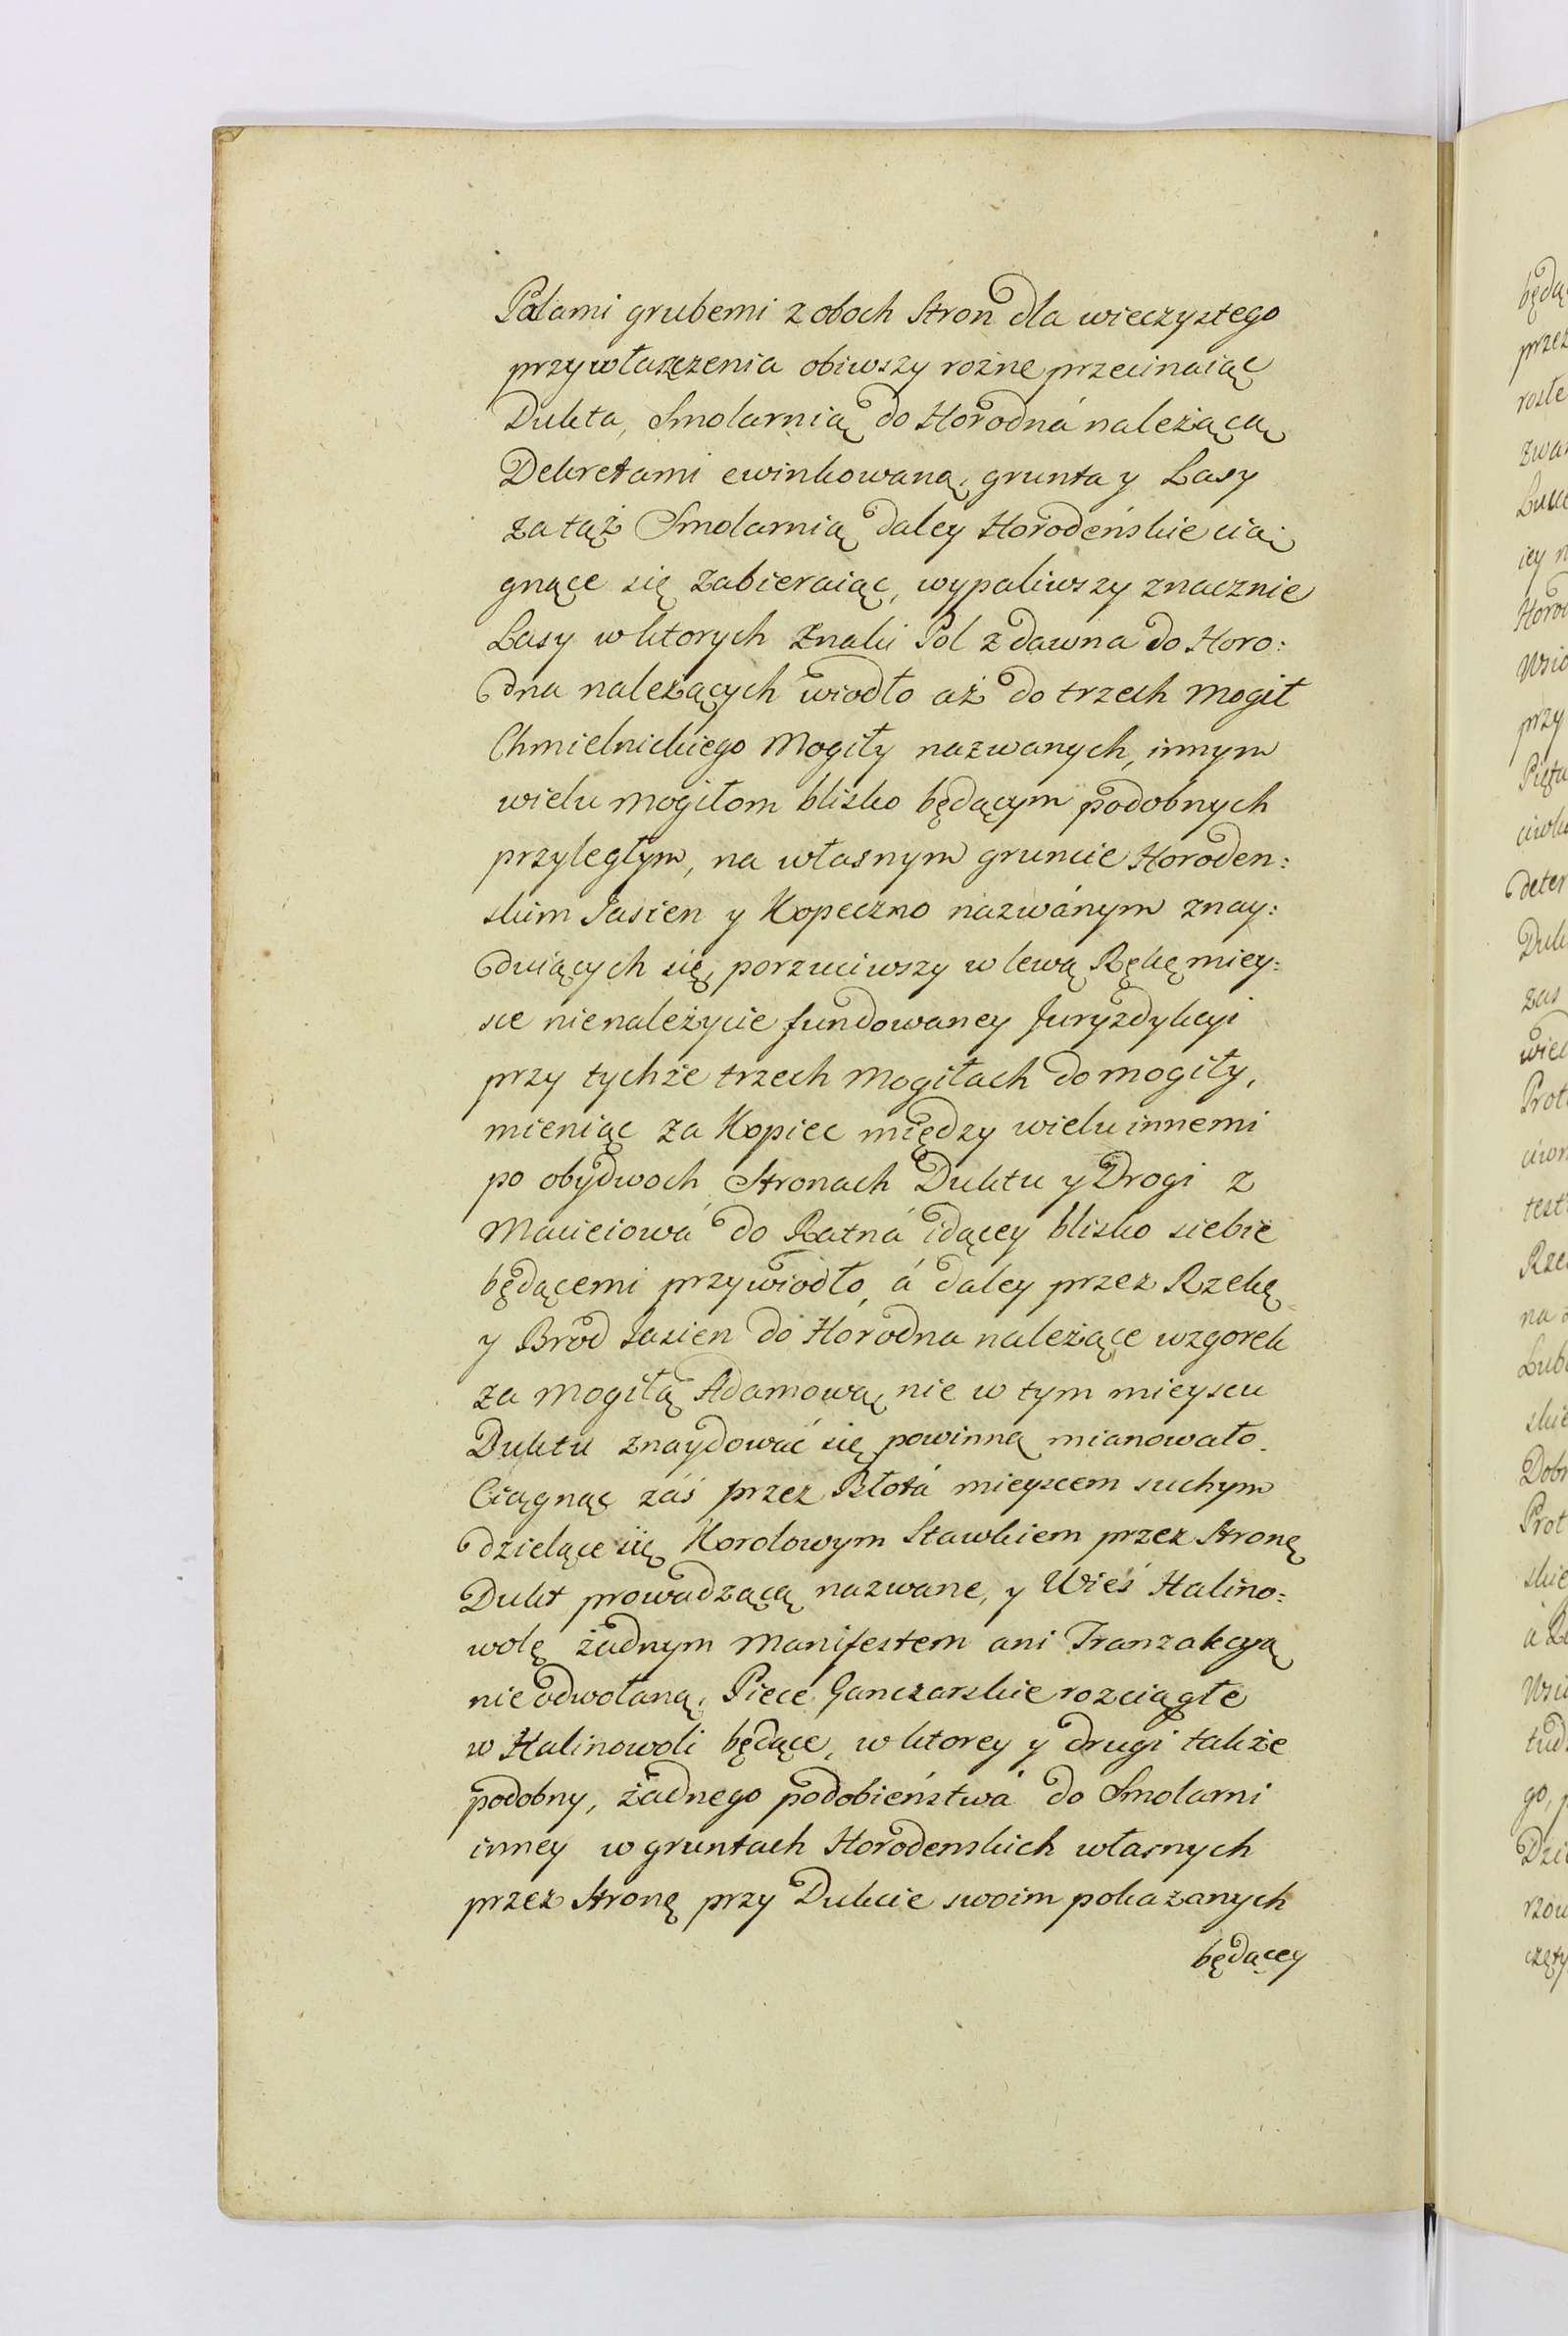 Palami grubemi z oboch Stron dla wieczystego
przywłaszczenia obiwszy rożne przecinaiąc
Dukta, Smolarnią do Horodná należącą
Dekretami ewinkowaną, grunta y Lasy
za tąż Smolarnią daley Horodeńskie cią:
gnące się zabieraiąc, wypaliwszy znacznie
Lasy w ktorych Znaki Pol z dawna do Horo:
dna należących wiodło aż do trzech Mogił
Chmielnickiego Mogiły nazwanych, innym
wielu mogiłom blisko będącym podobnych
przyległym, na własnym gruncie Horoden:
skim Jasien y Kopeczno nazwánym znay:
duiących się, porzuciwszy w lewą Rękę miey:
sce nienależycie fundowaney Juryzdykcyi
przy tychże trzech Mogiłach do mogiły,
mieniąc za Kopiec między wielu innemi
po obydwoch Stronach Duktu y Drogi z
Macieiowá do Ratná idącey blisko siebie
będącemi przywiodło, á daley przez Rzekę
y Brod Jasien do Horodna należące wzgorek
za Mogiłą Adamową nie w tym mieyscu
Duktu znaydować się powinną mianowało.
Ciągnąc záś przez Błotá mieyscem suchym
dzielące się Korolowym Stawkiem przez Stronę
Dukt prowadzącą nazwane, y Wieś Halino:
wolę żadnym Manifestem ani Tranzakcyą
nieodwołaną, Piece Ganczarskie rozciągłe
w Halinowoli będące, w ktorey y drugi także
podobny, żadnego podobieństwá do Smolarni
inney w gruntach Horodenskich własnych
przez Stronę przy Dukcie swoim pokazanych
będącey
będą
przez
rosłe
zwa
iey n
Horo
Wsio
przy
deter
Duk
zas
wie
Prot
test
Rze
na
Lub
skie
Dob
Prot
skie
Wsi
tud
go,
Dzi